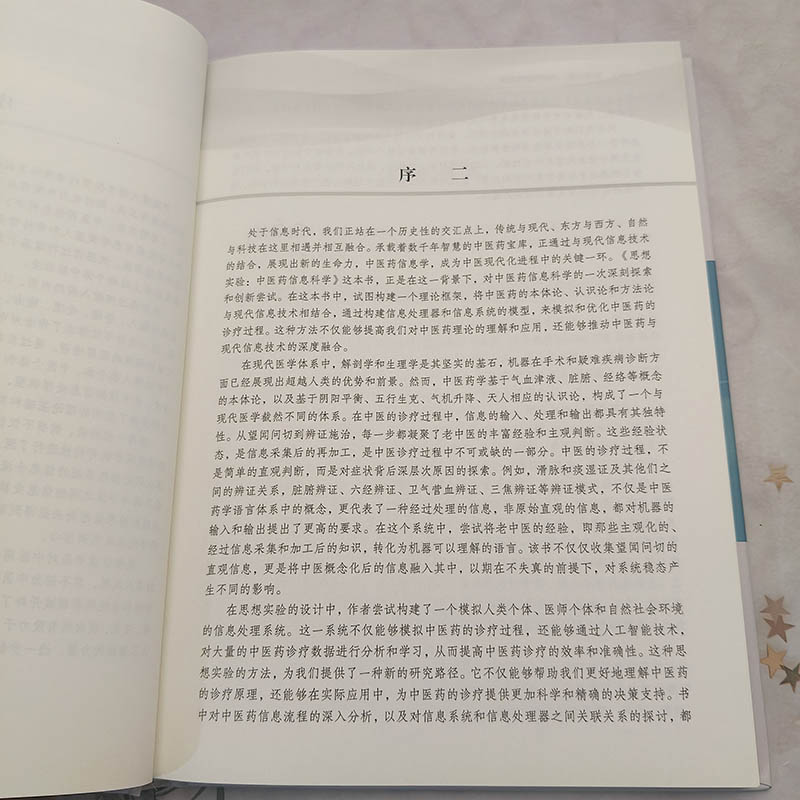 序 二
处于信息时代，我们正站在一个历史性的交汇点上，传统与现代、东方与西方、自然
与科技在这里相遇并相互融合。承载着数千年智慧的中医药宝库，正通过与现代信息技术
的结合，展现出新的生命力，中医药信息学，成为中医现代化进程中的关键一环。《思想
实验：中医药信息科学》这本书，正是在这一背景下，对中医药信息科学的一次深刻探索
和创新尝试。在这本书中，试图构建一个理论框架，将中医药的本体论、认识论和方法论
与现代信息技术相结合，通过构建信息处理器和信息系统的模型，来模拟和优化中医药的
诊疗过程。这种方法不仅能够提高我们对中医药理论的理解和应用，还能够推动中医药与
现代信息技术的深度融合。
在现代医学体系中，解剖学和生理学是其坚实的基石，机器在手术和疑难疾病诊断方
面已经展现出超越人类的优势和前景。然而，中医药学基于气血津液、脏腑、经络等概念
的本体论，以及基于阴阳平衡、五行生克、气机升降、天人相应的认识论，构成了一个与
现代医学截然不同的体系。在中医的诊疗过程中，信息的输入、处理和输出都具有其独特
性。从望闻问切到辨证施治，每一步都凝聚了老中医的丰富经验和主观判断。这些经验状
态，是信息采集后的再加工，是中医诊疗过程中不可或缺的一部分。中医的诊疗过程，不
是简单的直观判断，而是对症状背后深层次原因的探索。例如，滑脉和痰湿证及其他们之
间的辨证关系，脏腑辨证、六经辨证、卫气营血辨证、三焦辨证等辨证模式，不仅是中医
药学语言体系中的概念，更代表了一种经过处理的信息，非原始直观的信息，都对机器的
输入和输出提出了更高的要求。在这个系统中，尝试将老中医的经验，即那些主观化的、
经过信息采集和加工后的知识，转化为机器可以理解的语言。该书不仅仅收集望闻问切的
直观信息，更是将中医概念化后的信息融入其中，以期在不失真的前提下，对系统稳态产
生不同的影响。
在思想实验的设计中，作者尝试构建了一个模拟人类个体、医师个体和自然社会环境
的信息处理系统。这一系统不仅能够模拟中医药的诊疗过程，还能够通过人工智能技术，
对大量的中医药诊疗数据进行分析和学习，从而提高中医药诊疗的效率和准确性。这种思
想实验的方法，为我们提供了一种新的研究路径。它不仅能够帮助我们更好地理解中医药
的诊疗原理，还能够在实际应用中，为中医药的诊疗提供更加科学和精确的决策支持。书
中对中医药信息流程的深入分析，以及对信息系统和信息处理器之间关联关系的探讨，都